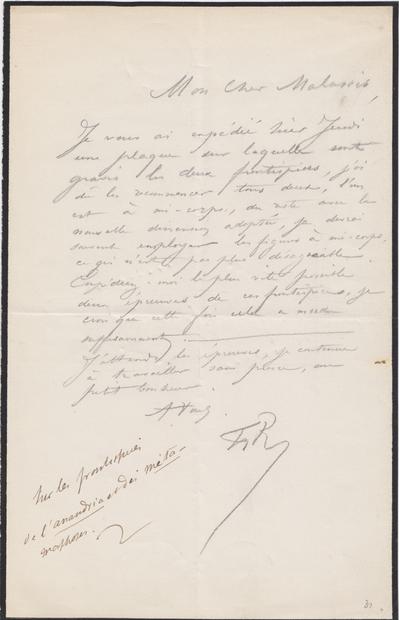 Mon Cher Malassis,
Je vous ai expédié hier Jeudi
une plaque sur laquelle sont
gravés les deux frontispices, j'ai
dû les recommencer tous deux, l'un
est à mi-corps, du reste avec la
nouvelle dimension adoptée, je devrai
souvent employer les figures à mi-corps,
ce qui n'est pas plus désagréable.
Expédiez-moi le plus vite possible
deux épreuves de ces frontispices, je
crois que cette fois cela
J'attends les épreuves, je continue
à travailler sans presse, au
petit bonheur.
A Vous
FR
Sur les frontispices
de l'anandria et des méta-
morphoses.
31